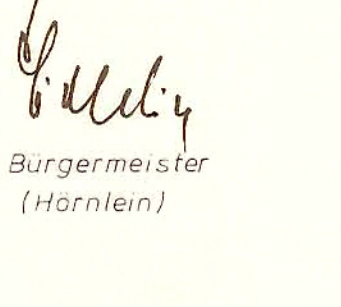 Bürgermeister
(Hörnlein)